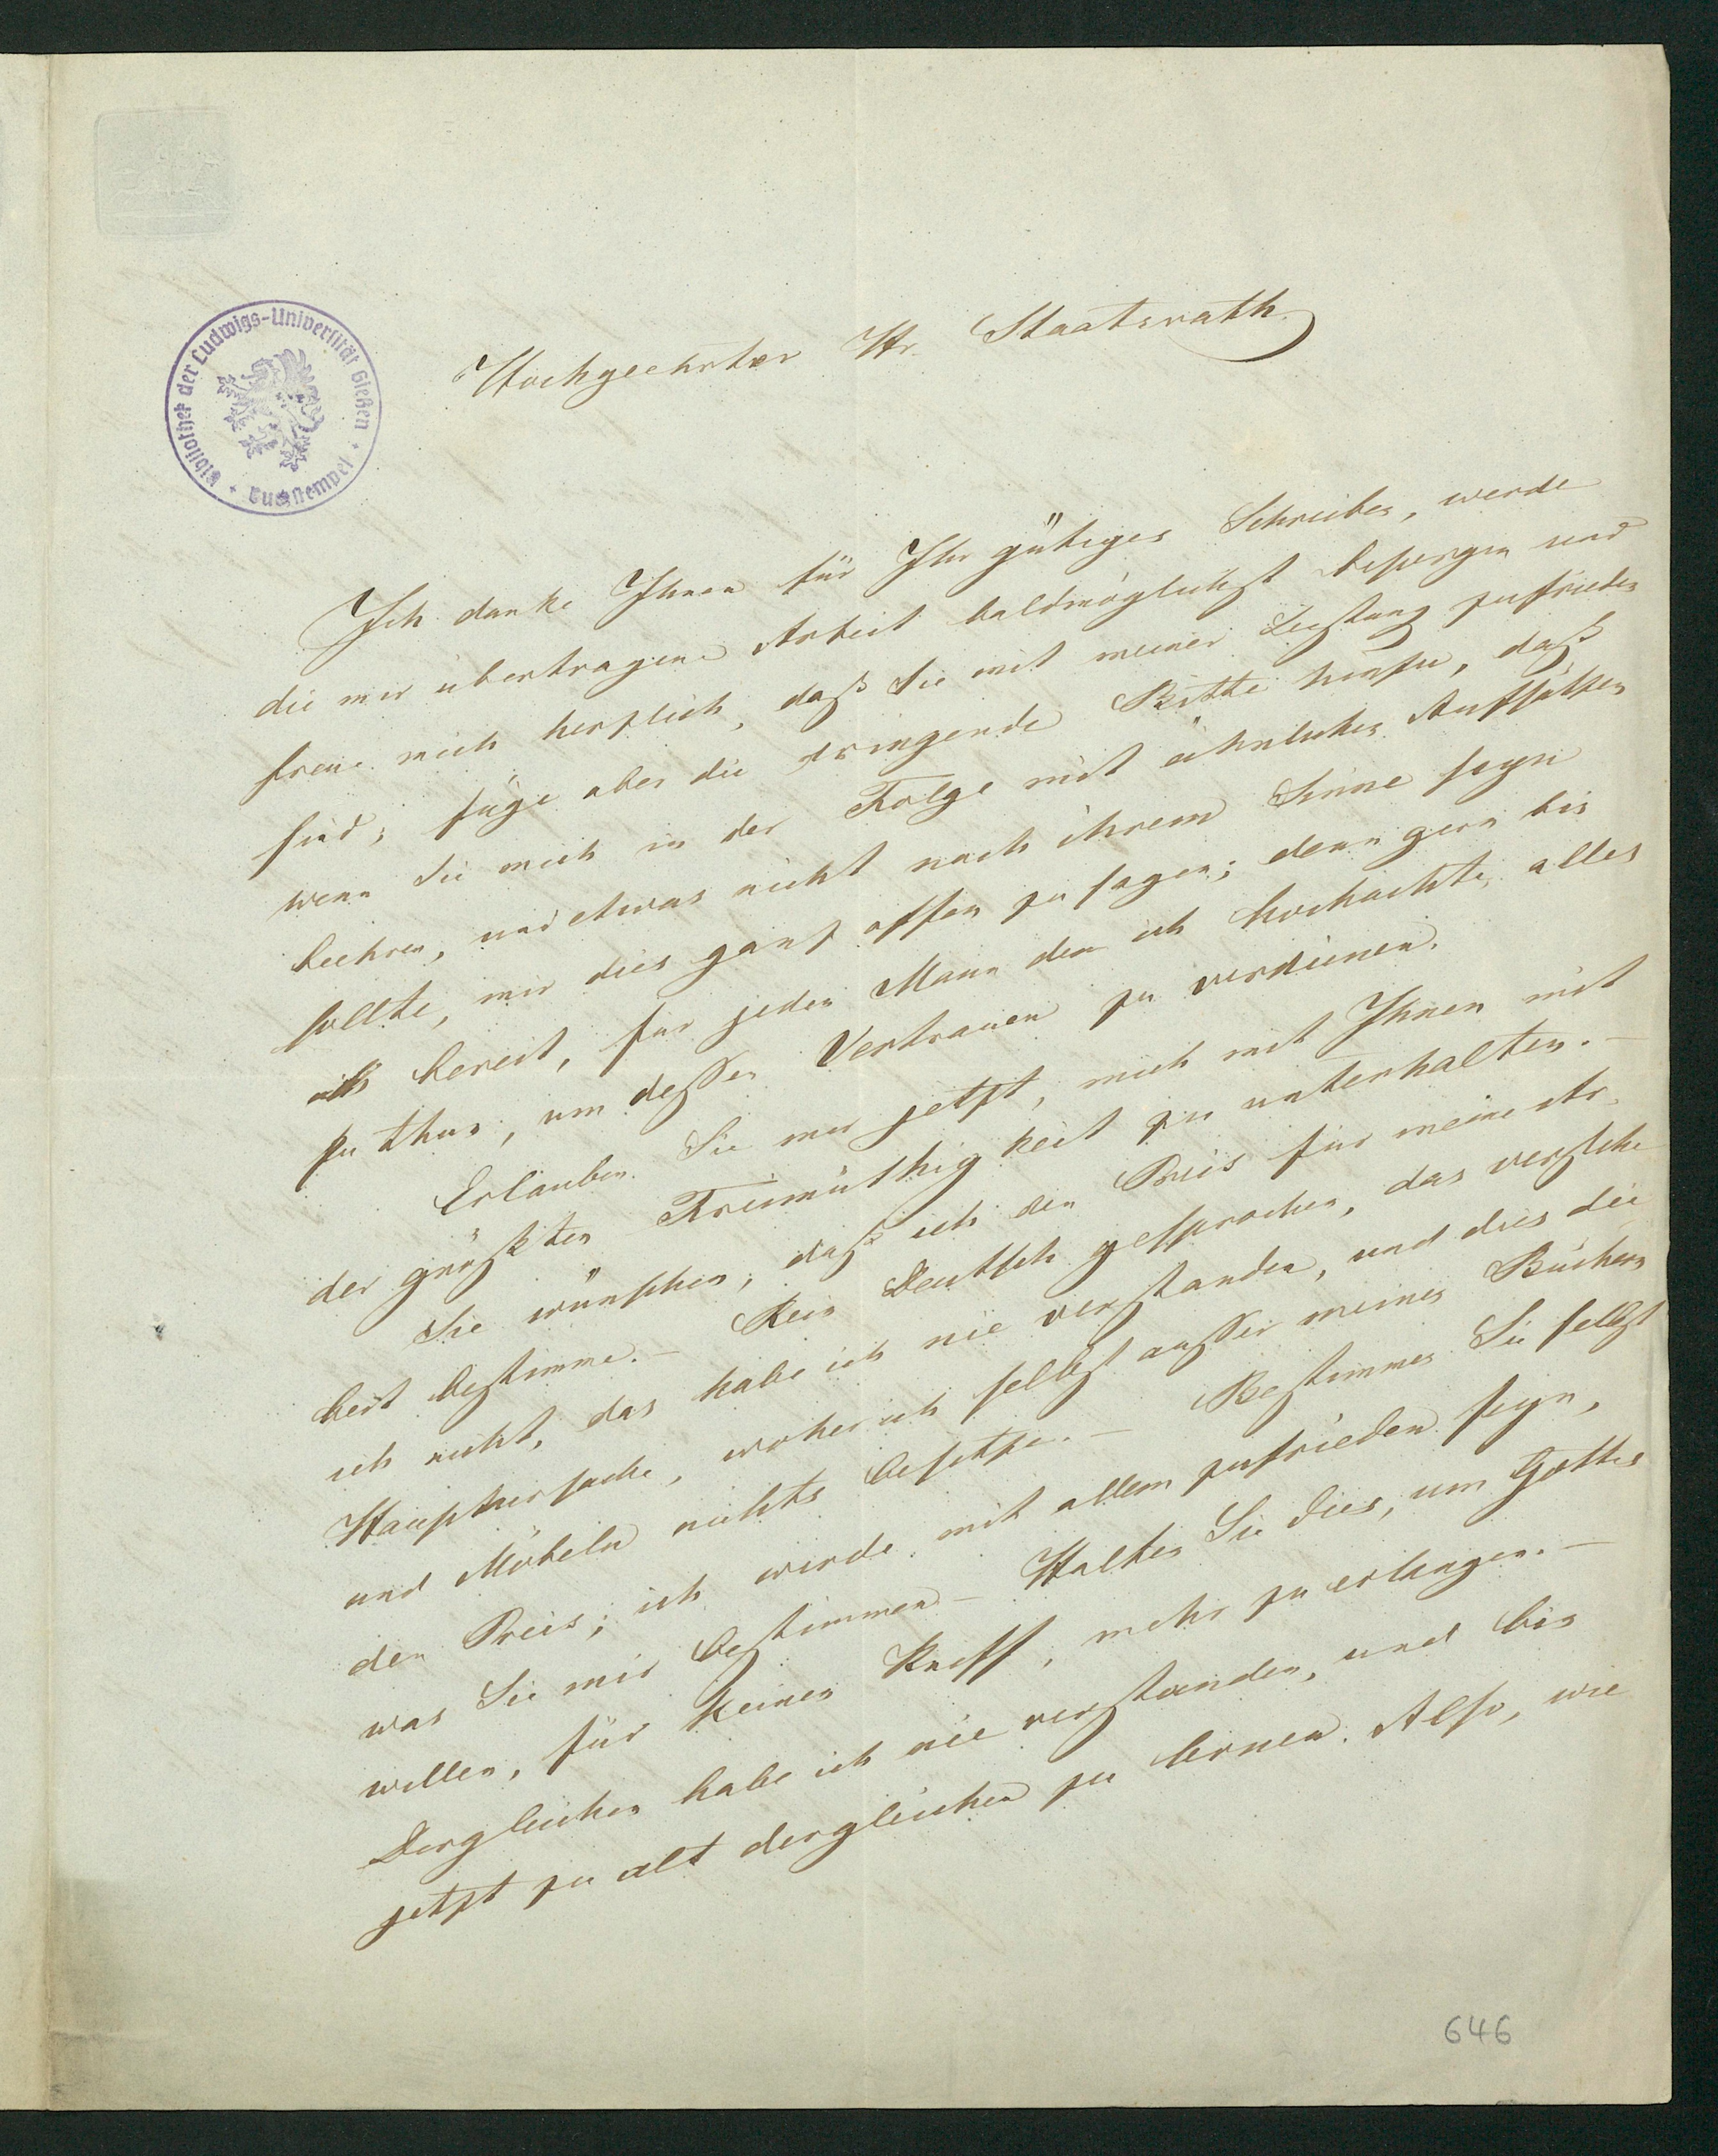 Bibliothek der Ludwigs-Universität Gießen
* Buchstempel *
Hochgeehrter Hr. Staatsrath
Ich danke Ihnen für Ihr gütiges Schreiben, werde
die mir übertragene Arbeit baldmöglichst besorgen und
freue mich herzlich, daß Sie mit meiner Leistung zufrieden
sind; füge aber die dringende Bitte hinzu, daß
wenn Sie mich in der Folge mit ähnlichen Aufsätzen
beehren, und etwas nicht nach ihrem Sinne seyn
sollte, mir dies ganz offen zu sagen; denn gern bin
ich bereit, für jeden Mann den ich hochachte, alles
zu thun, um dessen Vertrauen zu verdienen.
Erlauben Sie mir jetzt, mich mit Ihnen mit
der größten Freimüthigkeit zu unterhalten. –
Sie wünschen, daß ich den Preis für meine Ar-
beit bestimme. – Rein Deutsch gesprochen, das verstehe
ich nicht, das habe ich nie verstanden, und dies die
Hauptursache, woher ich selbst ausser meinen Büchern
und Möbeln nichts besitze. – Bestimmen Sie selbst
den Preis; ich werde mit allem zufrieden seyn,
was Sie mir bestimmen – Halten Sie dies, um Gottes
willen, für keinen Kniff, mehr zu erlangen. –
Dergleichen habe ich nie verstanden, und bin
jetzt zu alt dergleichen zu lernen. Also, wie
646